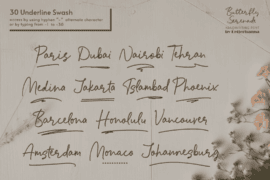 30 Underline Swash
Butterfly
Serenade
Paris Dubai Nairobi Tehran
Medina Jakarta Islambad Phoenix
Barcelona Honolulu Vancouver
Amsterdam Monaco Johannesburg